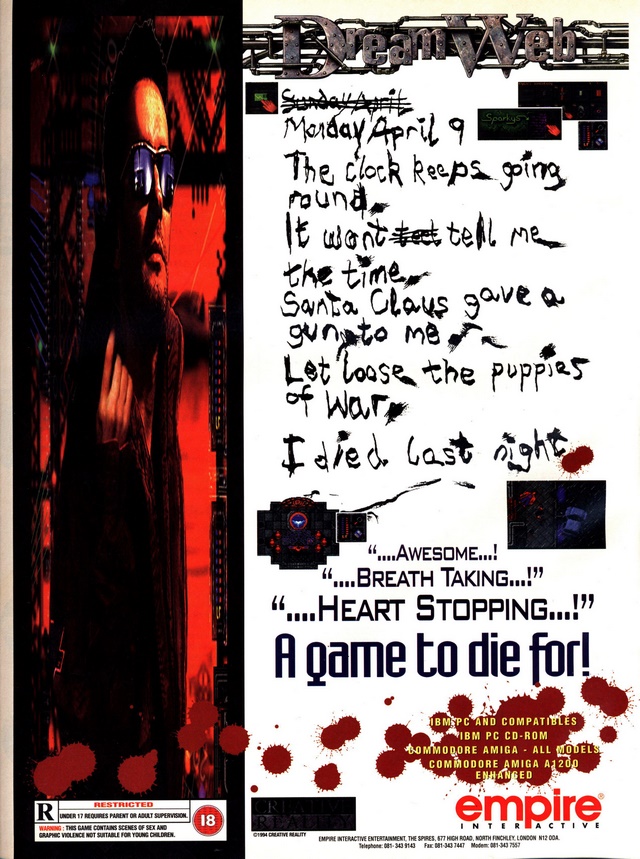 DreamWeb
Sunday April
Monday April 9
The clock keeps going
round
It wont teet tell me
the time
Santa Claus gave a
gun to me
Let loose the puppies
of War
I died last night
Sparkys
“....AWESOME...!
“....BREATH TAKING...!”
“....HEART STOPPING...!”
A game to die for!
IBM PC AND COMPATIBLES
IBM PC CD-ROM
COMMODORE AMIGA - ALL MODELS
COMMODORE AMIGA A1200
ENHANCED
R
RESTRICTED
UNDER 17 REQUIRES PARENT OR ADULT SUPERVISION.
WARNING : THIS GAME CONTAINS SCENES OF SEX AND
GRAPHIC VIOLENCE NOT SUITABLE FOR YOUNG CHILDREN.
18
CREATIVE
REALITY
©1994 CREATIVE REALITY
empire®
INTERACTIVE
EMPIRE INTERACTIVE ENTERTAINMENT, THE SPIRES, 677 HIGH ROAD, NORTH FINCHLEY, LONDON N12 0DA.
Telephone: 081- 343 9143 Fax: 081-343 7447 Modem: 081-343 7557